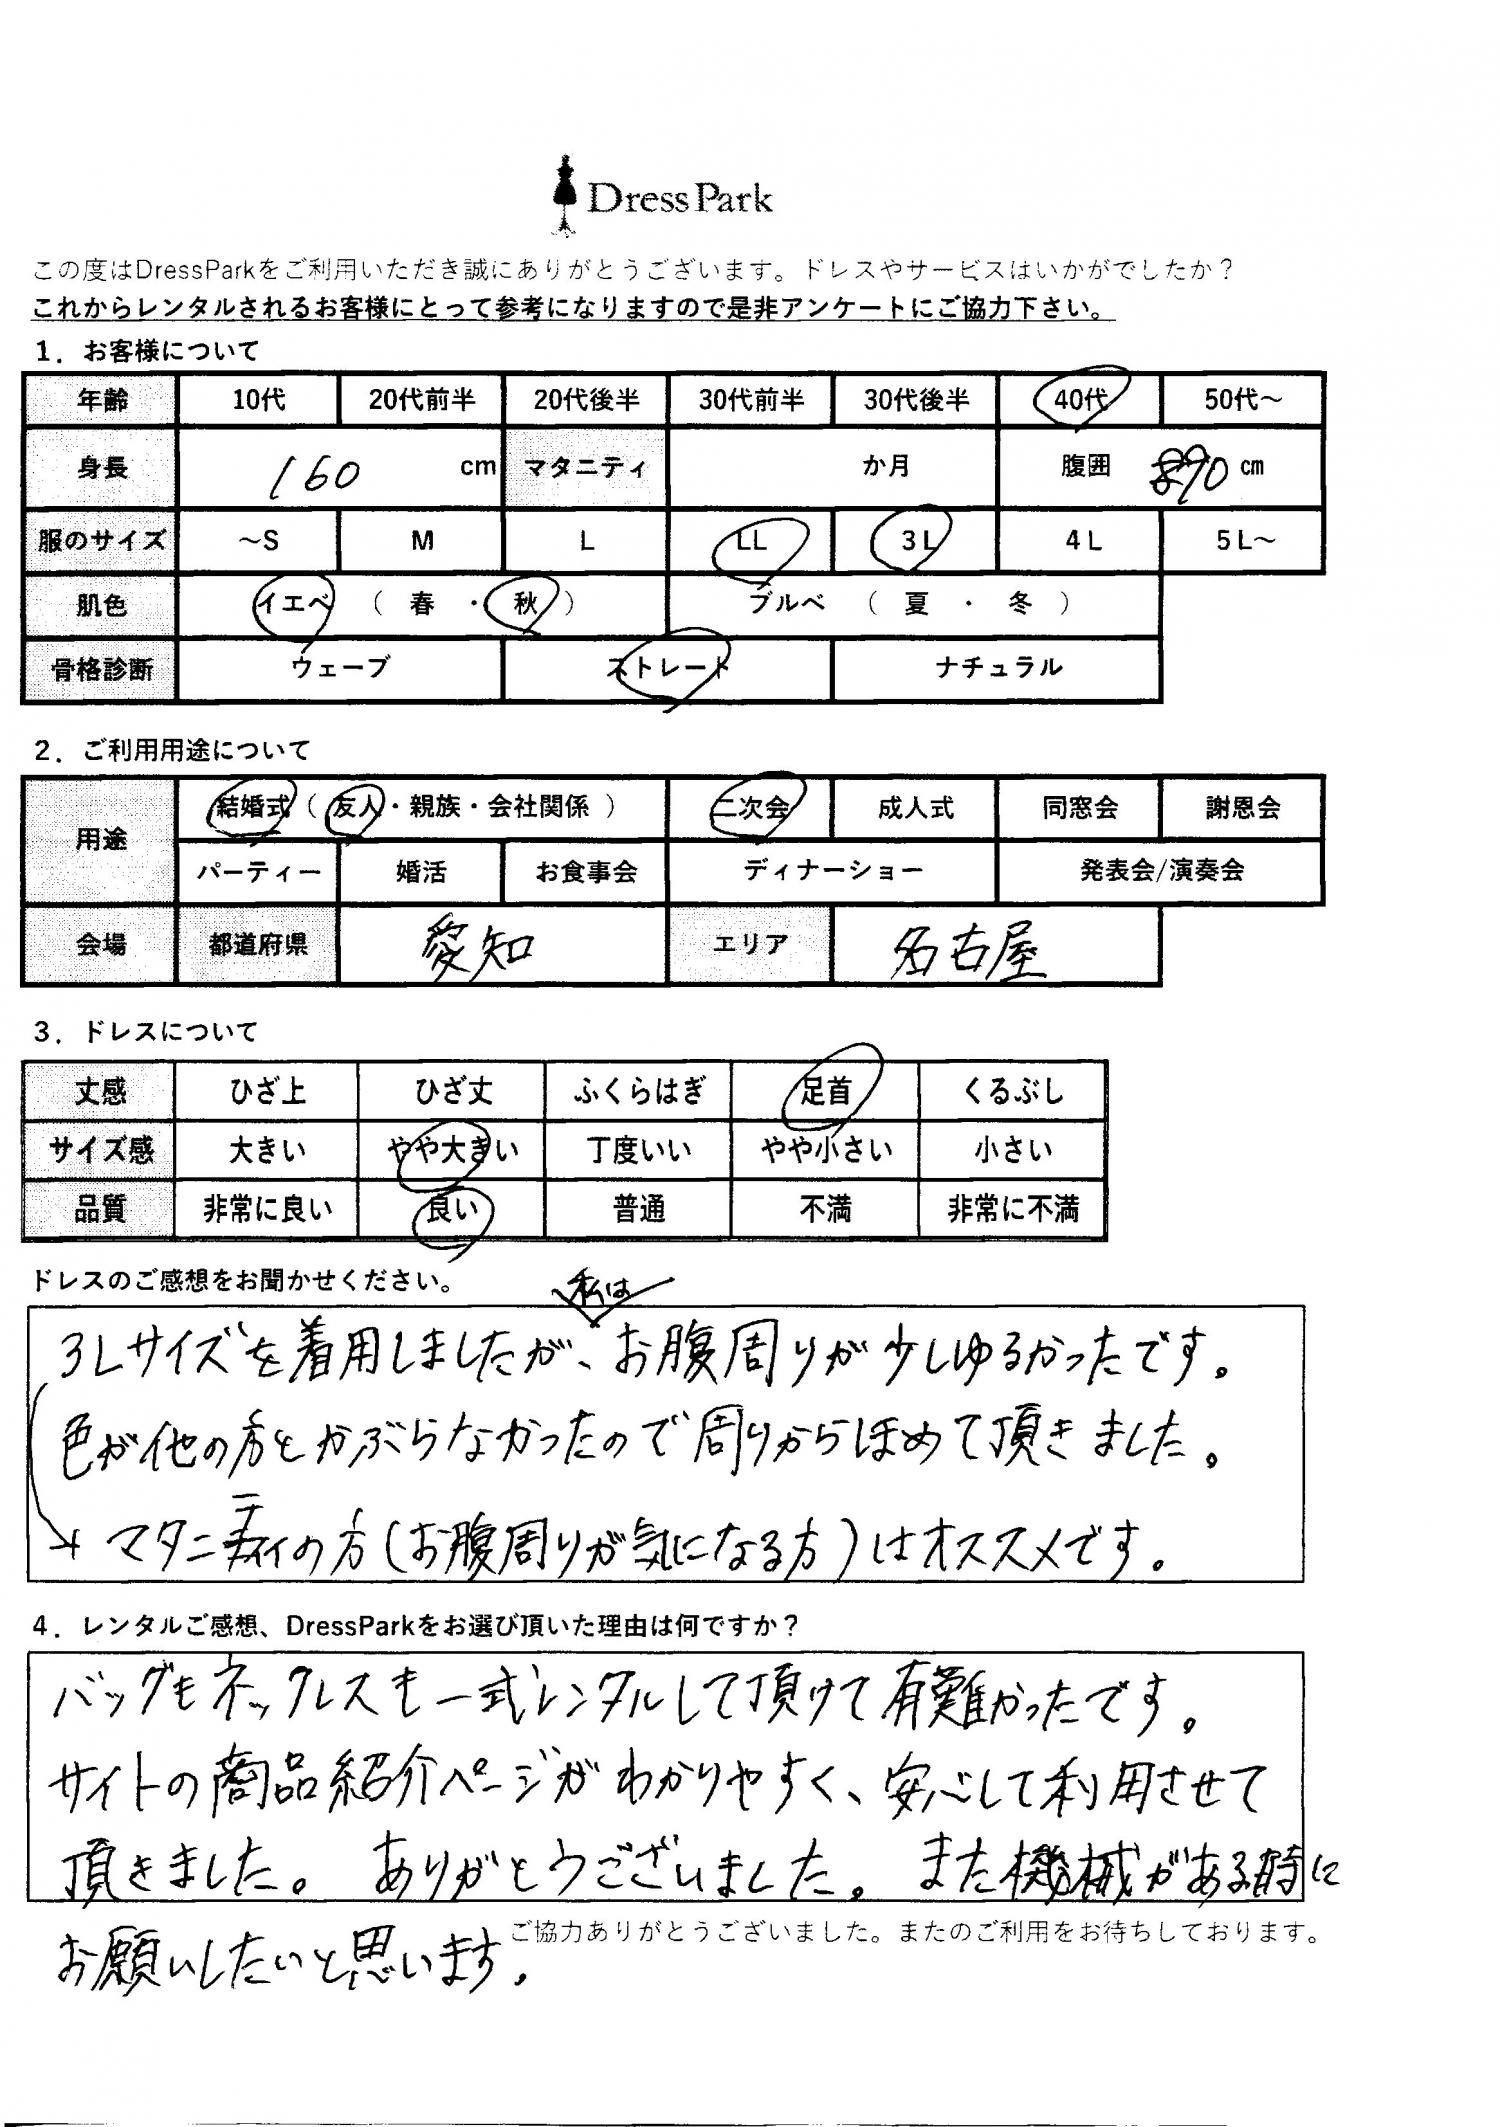 DressPark
この度はDressParkをご利用いただき誠にありがとうございます。ドレスやサービスはいかがでしたか？
これからレンタルされるお客様にとって参考になりますので是非アンケートにご協力下さい。
1．お客様について
年齢 10代 20代前半 20代後半 30代前半 30代後半 40代 50代～
身長 160 cm マタニティ か月 腹囲 90 cm
服のサイズ ～S M L LL 3L 4L 5L～
肌色 イエベ （ 春 ・ 秋 ） ブルベ （ 夏 ・ 冬 ）
骨格診断 ウェーブ ストレート ナチュラル
2．ご利用用途について
用途 結婚式（ 友人・親族・会社関係 ） 二次会 成人式 同窓会 謝恩会
パーティー 婚活 お食事会 ディナーショー 発表会/演奏会
会場 都道府県 愛知 エリア 名古屋
3．ドレスについて
丈感 ひざ上 ひざ丈 ふくらはぎ 足首 くるぶし
サイズ感 大きい やや大きい 丁度いい やや小さい 小さい
品質 非常に良い 良い 普通 不満 非常に不満
ドレスのご感想をお聞かせください。
3Lサイズを着用しましたが、私はお腹周りが少しゆるかったです。
色が他の方とかぶらなかったので周りからほめて頂きました。
→ マタニティの方(お腹周りが気になる方)はオススメです。
4．レンタルご感想、DressParkをお選び頂いた理由は何ですか？
バッグもネックレスも一式レンタルして頂けて有難かったです。
サイトの商品紹介ページがわかりやすく、安心して利用させて
頂きました。 ありがとうございました。 また機械がある時に
お願いしたいと思います。
ご協力ありがとうございました。またのご利用をお待ちしております。